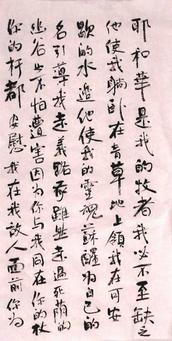 耶和華是我的牧者我必不至缺乏
他使我躺卧在青草地上领我在可安
歇的水邊他使我的靈魂蘇醒为自己的
名引導我走義路我雖然走過死蔭的
幽谷也不怕遭害因为你与我同在你的杖
你的杆都安慰我在我敌人面前你为